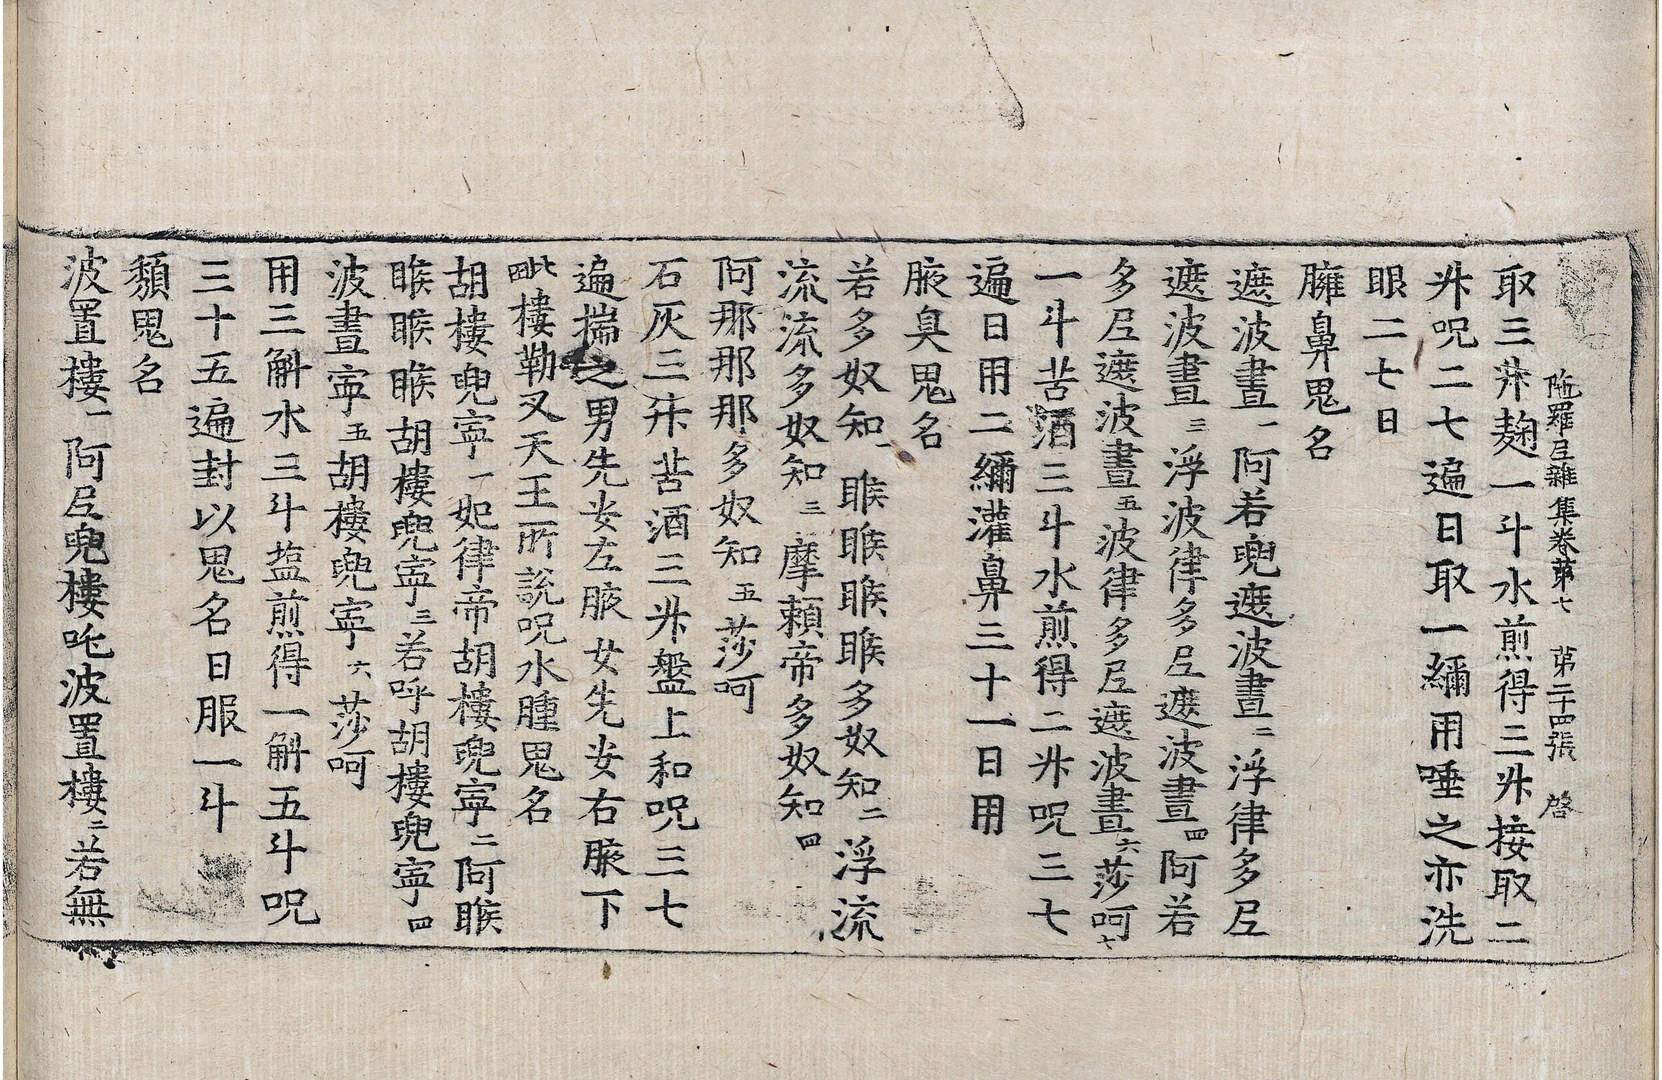 陁羅尼雜集卷第七 第二十四張 啓
取三升麹一斗水煎得三升接取二
升呪二七遍日取一繭用唾之亦洗
眼二七日
臃鼻鬼名
遮波晝一阿若兜遮波晝二浮律多尼
遮波晝三浮波律多尼遮波晝四阿若
多尼遮波晝五波律多尼遮波晝六莎呵七
一斗苦酒三斗水煎得二升呪三七
遍日用二繭灌鼻三十一日用
腋臭鬼名
若多奴知 睺睺睺睺多奴知二浮流
流流多奴知三摩頼帝多奴知四
阿那那那多奴知五莎呵
石灰三升苦酒三升盤上和呪三七
遍揣之男先安左腋女先安右腋下
毗樓勒叉天王所説呪水腫鬼名
胡樓兜寜一妃律帝胡樓兜寜二阿睺
睺睺睺胡樓兜寜三若呼胡樓兜寜四
波晝寜五胡樓兜寜六莎呵
用三斛水三斗塩煎得一斛五斗呪
三十五遍封以鬼名日服一斗
頽鬼名
波置樓一阿尼兜樓吒波置樓二若無